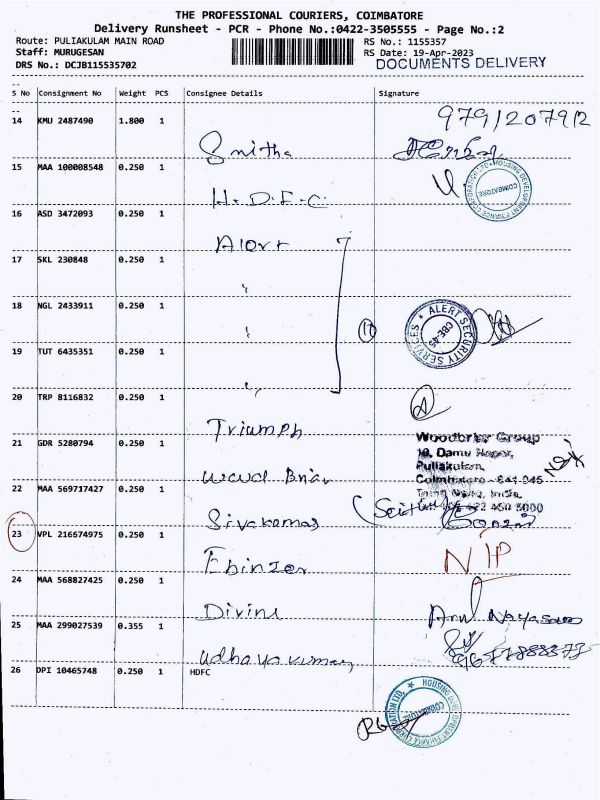 THE PROFESSIONAL COURIERS, COIMBATORE
Delivery Runsheet - PCR - Phone No.:0422-3505555 - Page No.:2
Route: PULIAKULAM MAIN ROAD
Staff: MURUGESAN
DRS No.: DCJB115535702
RS No.: 1155357
RS Date: 19-Apr-2023
DOCUMENTS DELIVERY
S No Consignment No Weight PCS Consignee Details Signature
14 KMU 2487490 1.800 1
9791207912
Smitha
15 MAA 100008548 0.250 1
H.D.F.C.
HOUSING DEVELOPMENT FINANCE CORPORATION LTD.
COIMBATORE
16 ASD 3472093 0.250 1
Alert
17 SKL 230848 0.250 1
"
18 NGL 2433911 0.250 1
"
ALERT SECURITY SERVICES
CBE-45
19 TUT 6435351 0.250 1
"
20 TRP 8116832 0.250 1
Triumph
21 GDR 5280794 0.250 1
Woodbriar Group
10, Damu Nagar,
Puliakulam,
Coimbatore - 641 045
Tamil Nadu, India.
Wood Briar
22 MAA 569717427 0.250 1
Sivakumar
23 VPL 216674975 0.250 1
NIP
Ebinzer
24 MAA 568827425 0.250 1
Divine
25 MAA 299027539 0.355 1
Udhayakumar
26 DPI 10465748 0.250 1 HDFC
HOUSING DEVELOPMENT FINANCE CORPORATION LTD.
COIMBATORE